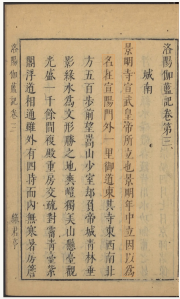 洛陽伽藍記卷第三
城南
景明寺宣武皇帝所立也景明年中立因以為
名在宣陽門外一里御道東其寺東西南北
方五百步前望嵩山少室却負帝城青林垂
影綠水為文形勝之地爽塏獨美山懸堂觀
光盛一千餘間複殿重房交疏對霤青臺紫
閣浮道相通雖外有四時而內無寒暑房簷
洛陽伽藍記卷三